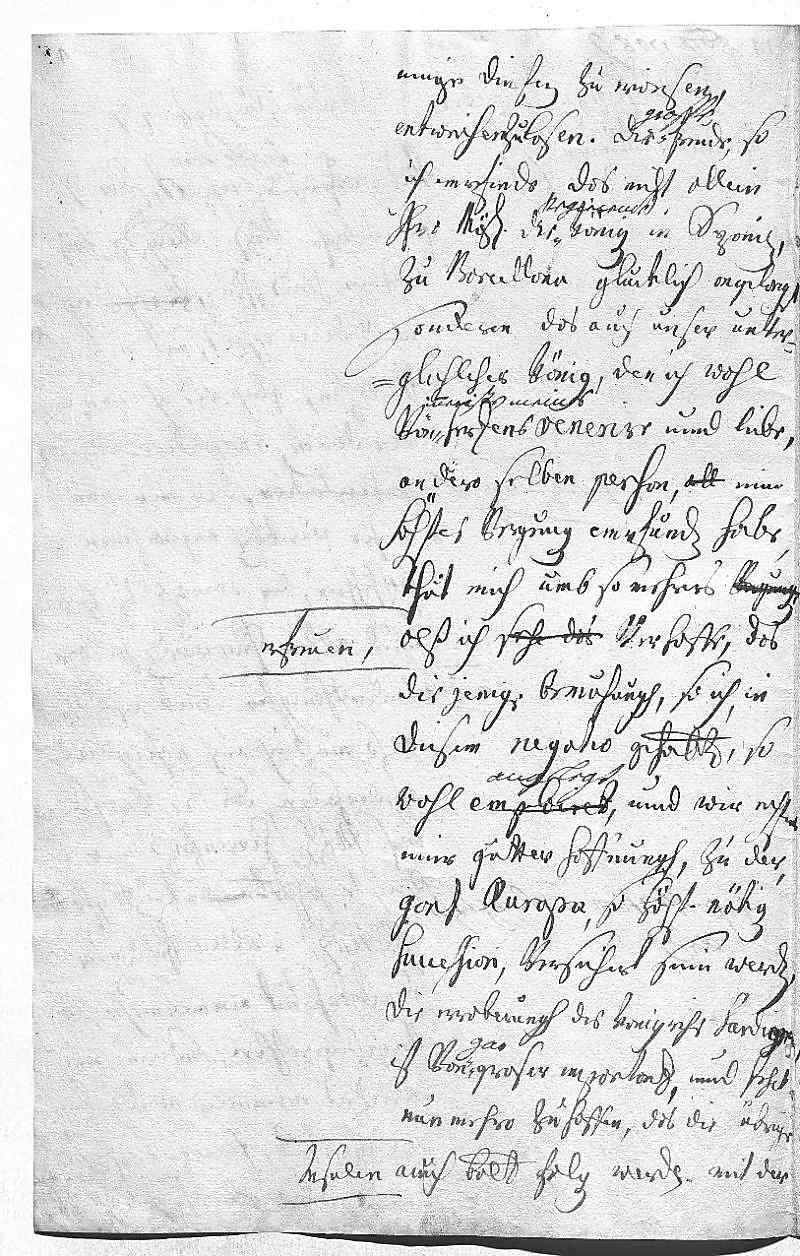 einige diensten zu erweisen,
entweichen zulosen. die große freude, so
ich empfinde, das nicht allein
Ihro May: die Regierende König: in Spanien,
zu Barcellona glücklich angelangt
sonderen das auch unser unver-
=gleichlicher König, den ich wohl
Von innerist meines herzens venerire unnd liebe,
an dero selben person, eine
höchstes Vergnügen empfunden habe,
thuet mich umb so mehrers
erfreuen, alß ich Verhoffe, das
die jenige bemühungh, so ich in
diesem negotio gehabt, so
wohl angelegt, unnd wir nechst
einer gutter hoffnungh, zu der,
gantz Europa, so höchst nötig
Succession, Versichert sein werden,
die eroberungh des Königreichs Sardignien,
ist Von gar groser importantz, unnd steht
nunmehro zu hoffen, das die übrige
Insulen auch balt folgen werden. mit der